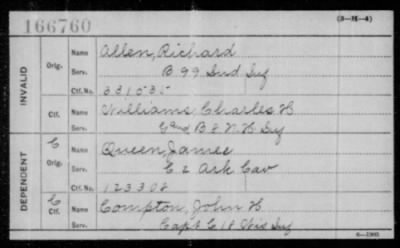 166760
(3-H-4)
INVALID
Orig.
Name Allen, Richard
Serv. B 99 Ind Inf
Ctf. No. 331035
Ctf.
Name Williams Charles H
Serv. B & N H Inf
DEPENDENT
C
Orig.
Name Queen, James
Serv. C 2 Ark Cav
Ctf. No. 123308
C
Ctf.
Name Compton, John H.
Serv. Capt C 18 Wis Inf
6-1903